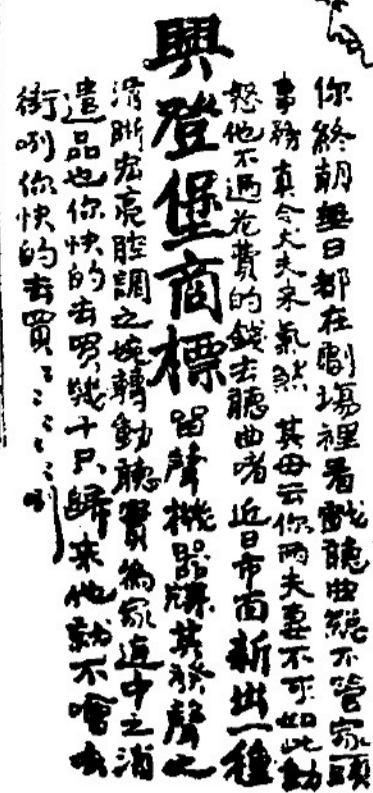 你終朝無日都在劇場裡看戲聽曲總不管家頭
事務真令丈夫氣煞其母云你兩夫妻不可如此動
怒他不過花費的錢去聽曲啫近日市面新出一種
興登堡商標留聲機器牒其發聲之
清晰宏亮腔調之婉轉動聽實為家庭中之消
遣品也你快的去買幾十只歸來他就不會出
街咧你快的去買